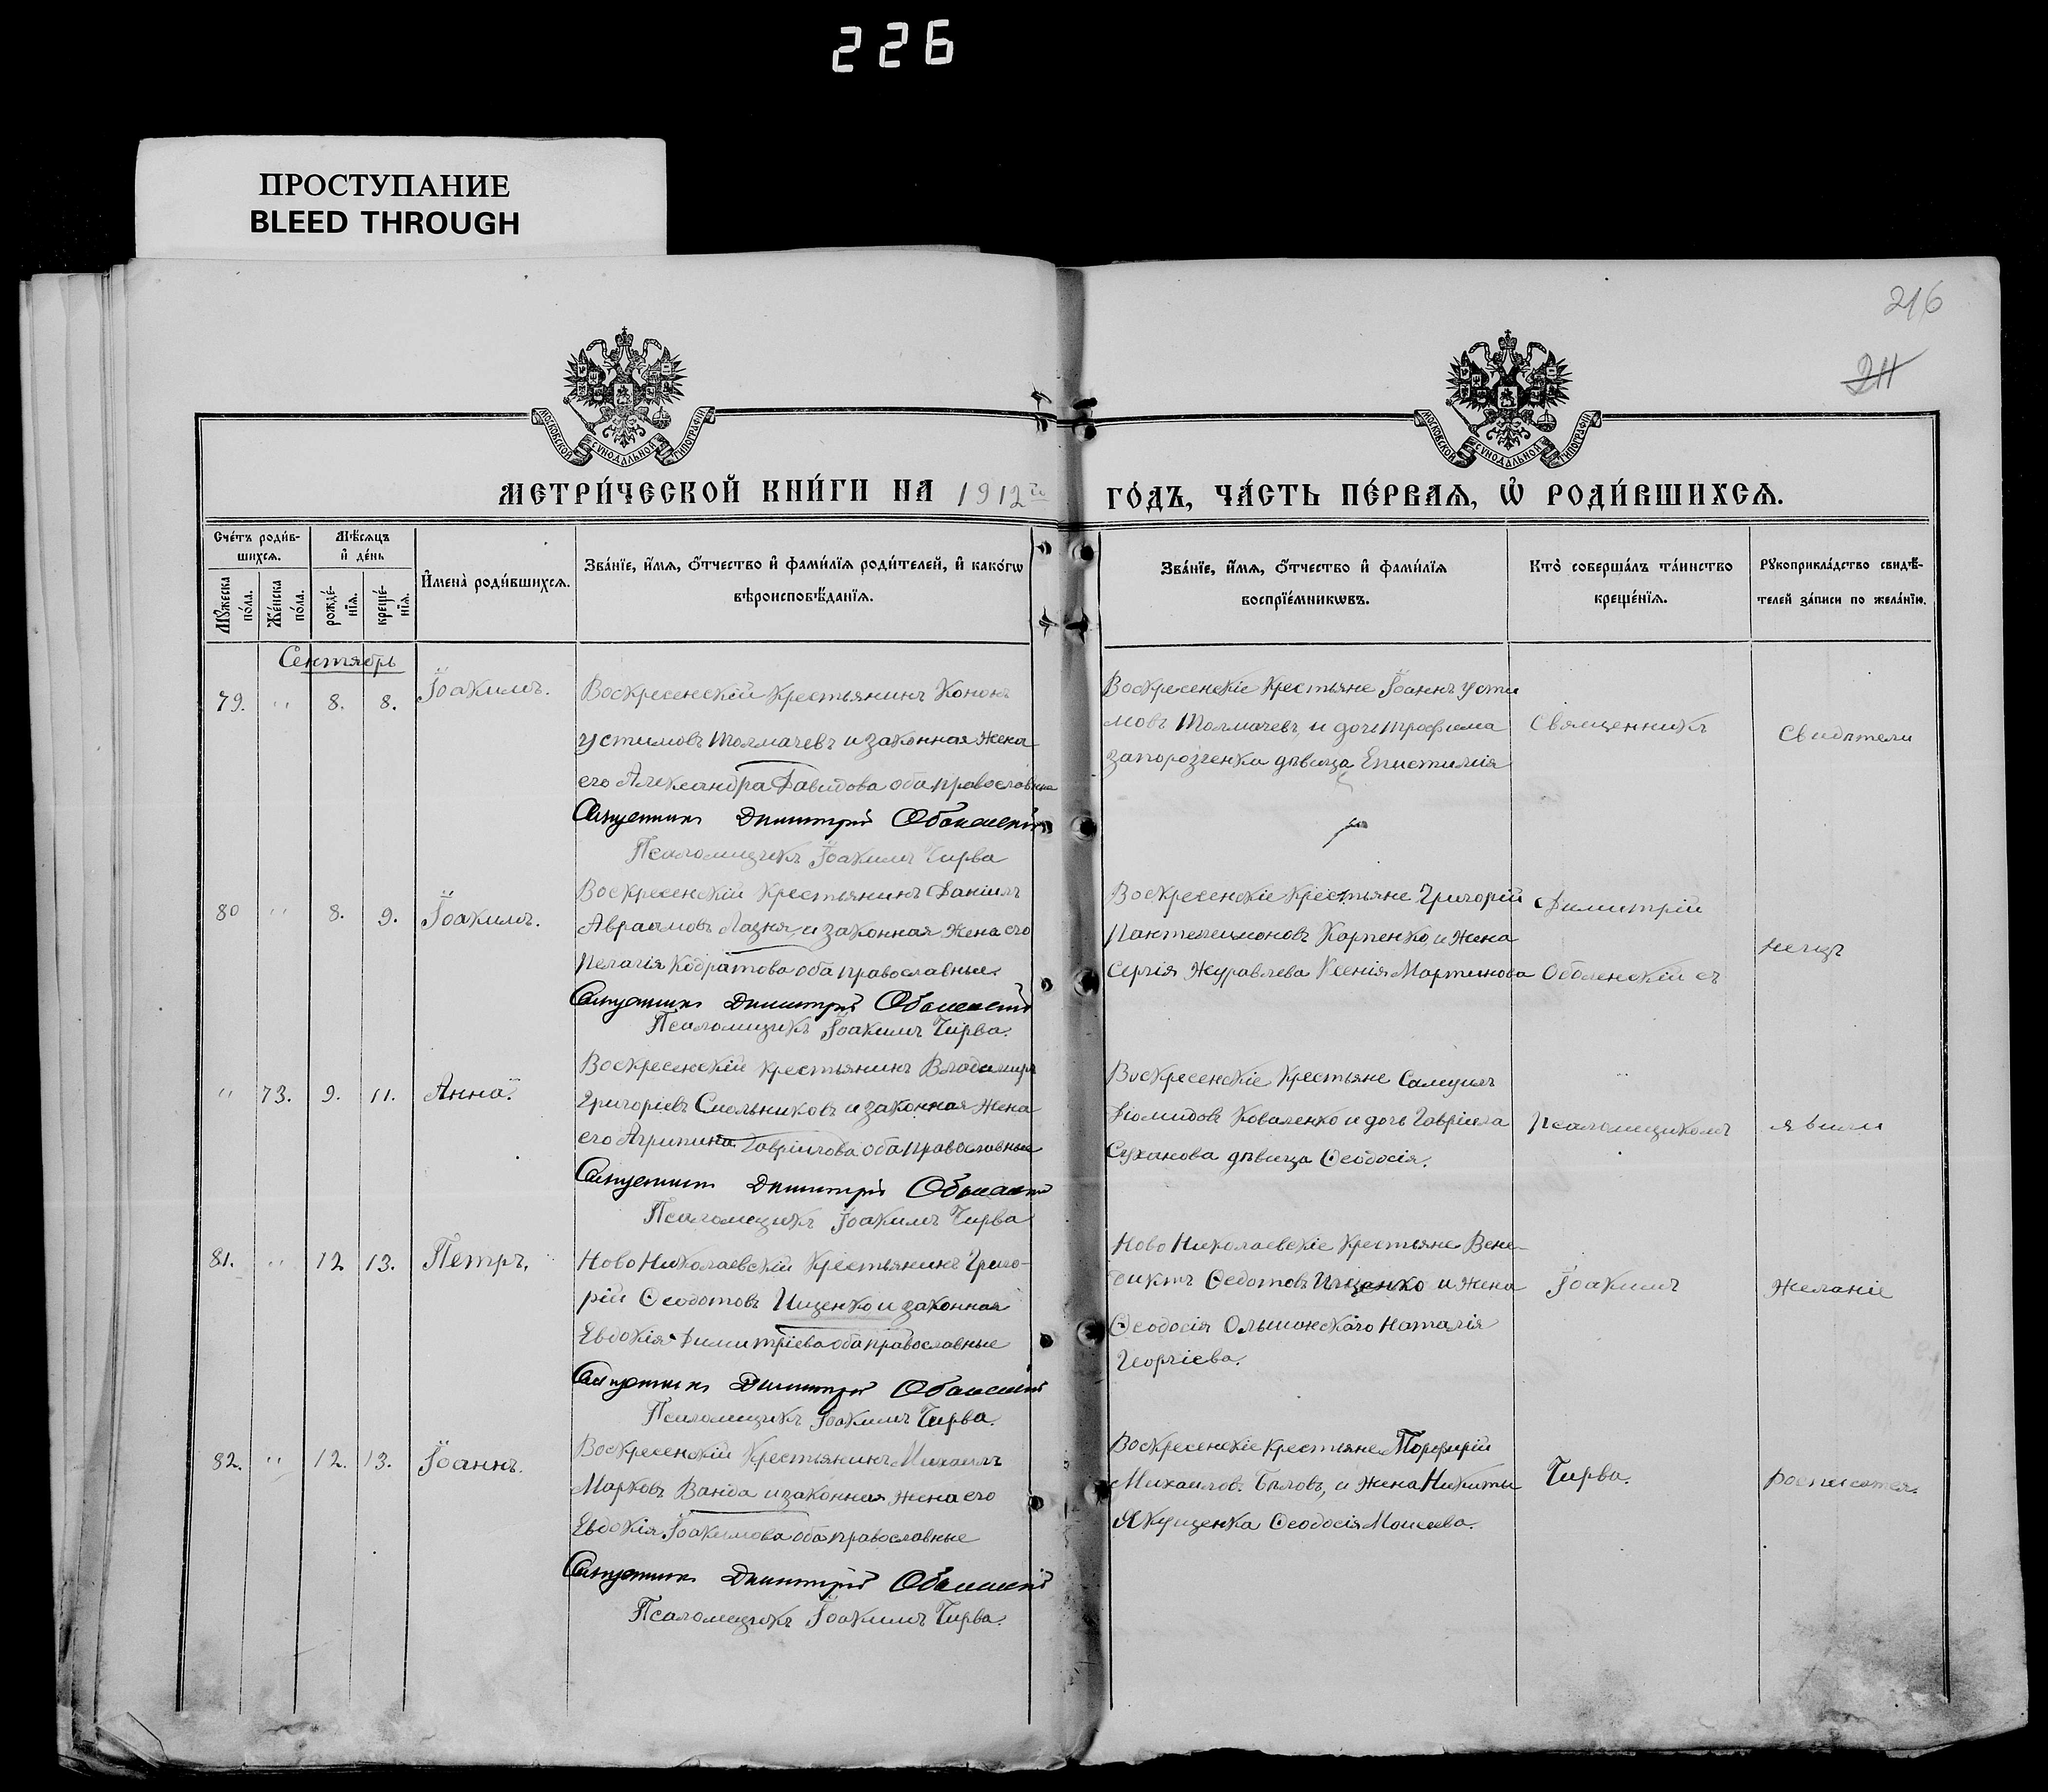 226
ПРОСТУПАНИЕ
BLEED THROUGH
216
211
МОСКОВСКОЙ СѴНОДАЛЬНОЙ ТИПОГРАФІИ
МОСКОВСКОЙ СѴНОДАЛЬНОЙ ТИПОГРАФІИ
МЕТРИ́ЧЕСКОЙ КНИ́ГИ НА 1912 го
ГО́ДЪ, ЧА́СТЬ ПЕ́РВАѦ, Ѡ҆ РОДИ́ВШИХСѦ.
Сче́тъ роди́в-
шихсѧ.
Мѣ́сѧцъ
и҆ де́нь
Мꙋ́жеска по́ла.
Же́нска по́ла.
рожде́-нїѧ.
креще́-нїѧ.
И҆мена̀ роди́вшихсѧ.
Зва́нїе, и҆́мѧ, ѻ҆́тчество и҆ фами́лїѧ роди́телей, и҆ како́гѡ
вѣроисповѣ́данїѧ.
Зва́нїе, и҆́мѧ, ѻ҆́тчество и҆ фами́лїѧ
воспрїе́мникѡвъ.
Кто̀ соверша́лъ та́инство
креще́нїѧ.
Рꙋкоприкла́дство свидѣ́-
телей за́писи по жела́нїю.
Сентябрь
79. " 8. 8. Іоакимъ.
Воскресенскій Крестьянинъ Кононъ
Устимовъ Толмачевъ и законная Жена
его Александра Давидова оба православные
Священникъ Димитрій Оболенскій
Псаломщикъ Іоакимъ Чирва
Воскресенскіе Крестьяне Іоаннъ Усти
мовъ Толмачевъ, и дочь Трофима
Запорозченка дѣвица Епистимія
Священникъ
Свидѣтели
80 " 8. 9. Іоакимъ.
Воскресенскій Крестьянинъ Даніилъ
Авраамовъ Лазня, и законная Жена его
Пелагія Кодратова оба православные.
Священникъ Димитрій Оболенскій
Псаломщикъ Іоакимъ Чирва.
Воскресенскіе Крестьяне Григорій
Пантелеимоновъ Карпенко, и Жена
Сергія Журавлева Ксенія Мартинова
Димитрій
Оболенскій съ
неизъ
" 73. 9. 11. Анна.
Воскресенскій Крестьянинъ Владимиръ
Григоріевъ Смельниковъ и законная Жена
его Агрипина Гавріилова оба православные
Священникъ Димитрій Оболенскій
Псаломщикъ Іоакимъ Чирва
Воскресенскіе Крестьяне Самуилъ
Діомидовъ Коваленко и дочь Гавріила
Суханова дѣвица Ѳеодосія.
Псаломщикомъ
явили
81. " 12 13. Петръ.
Ново Николаевскій Крестьянинъ Григо-
рій Ѳеодотовъ Ищенко и законная
Евдокія Димитріева оба православные
Священникъ Димитрій Оболенскій
Псаломщикъ Іоакимъ Чирва.
Ново Николаевскіе Крестьяне Вене-
диктъ Ѳедотовъ Ищенко и Жена
Ѳеодосія Ольшанскаго Наталія
Георгіева.
Іоакимъ
Желаніе
82. " 12. 13. Іоаннъ.
Воскресенскій Крестьянинъ Михаилъ
Марковъ Ванда и законная Жена его
Евдокія Іоакимова оба православные
Священникъ Димитрій Оболенскій
Псаломщикъ Іоакимъ Чирва.
Воскресенскіе Крестьяне Порфирій
Михаиловъ Бѣловъ, и Жена Никиты
Якущенка Ѳеодосія Моисеева.
Чирва.
росписатся.